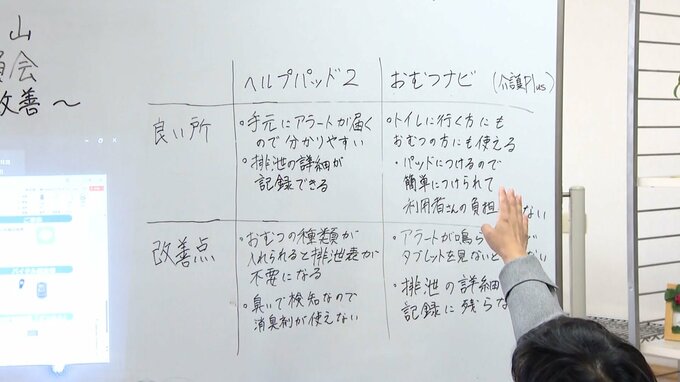 山
会
改善～
ヘルプパッド2
おむつナビ (介護Plus)
良い所
・手元にアラートが届く
ので分かりやすい
・排泄の詳細が
記録できる
・トイレに行く方にも
おむつの方にも使える
・パッドにつけるので
簡単につけられて
利用者さんの負担
ない
改善点
・おむつの種類が
入れられると排泄表が
不要になる
・臭いで検知なので
消臭剤が使えない
・アラートが鳴ら
タブレットを見ないと
ない
・排泄の詳細
記録に残らな